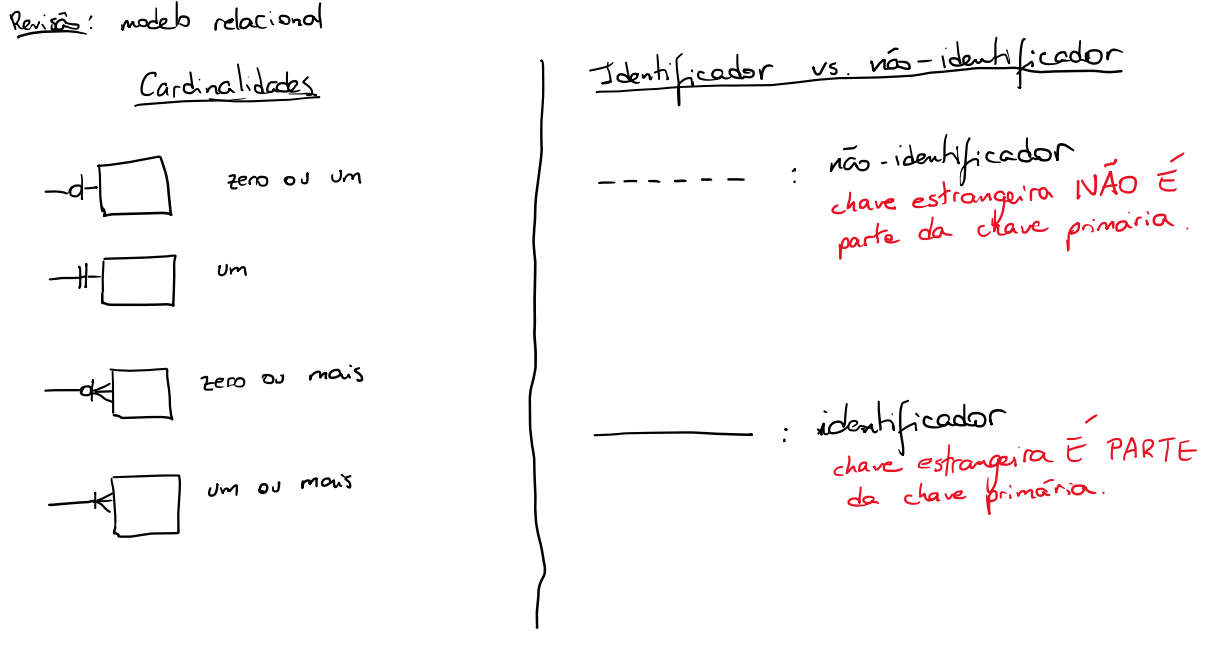 Revisão: modelo relacional
Cardinalidades
zero ou um
um
zero ou mais
um ou mais
Identificador vs. não-identificador
: não-identificador
chave estrangeira NÃO É
parte da chave primária.
: identificador
chave estrangeira É PARTE
da chave primária.